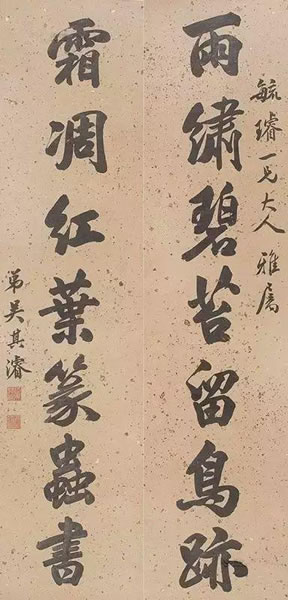 毓璿一兄大人 雅属
雨繡碧苔留鳥跡
霜凋紅葉篆蟲書
弟吴其濬